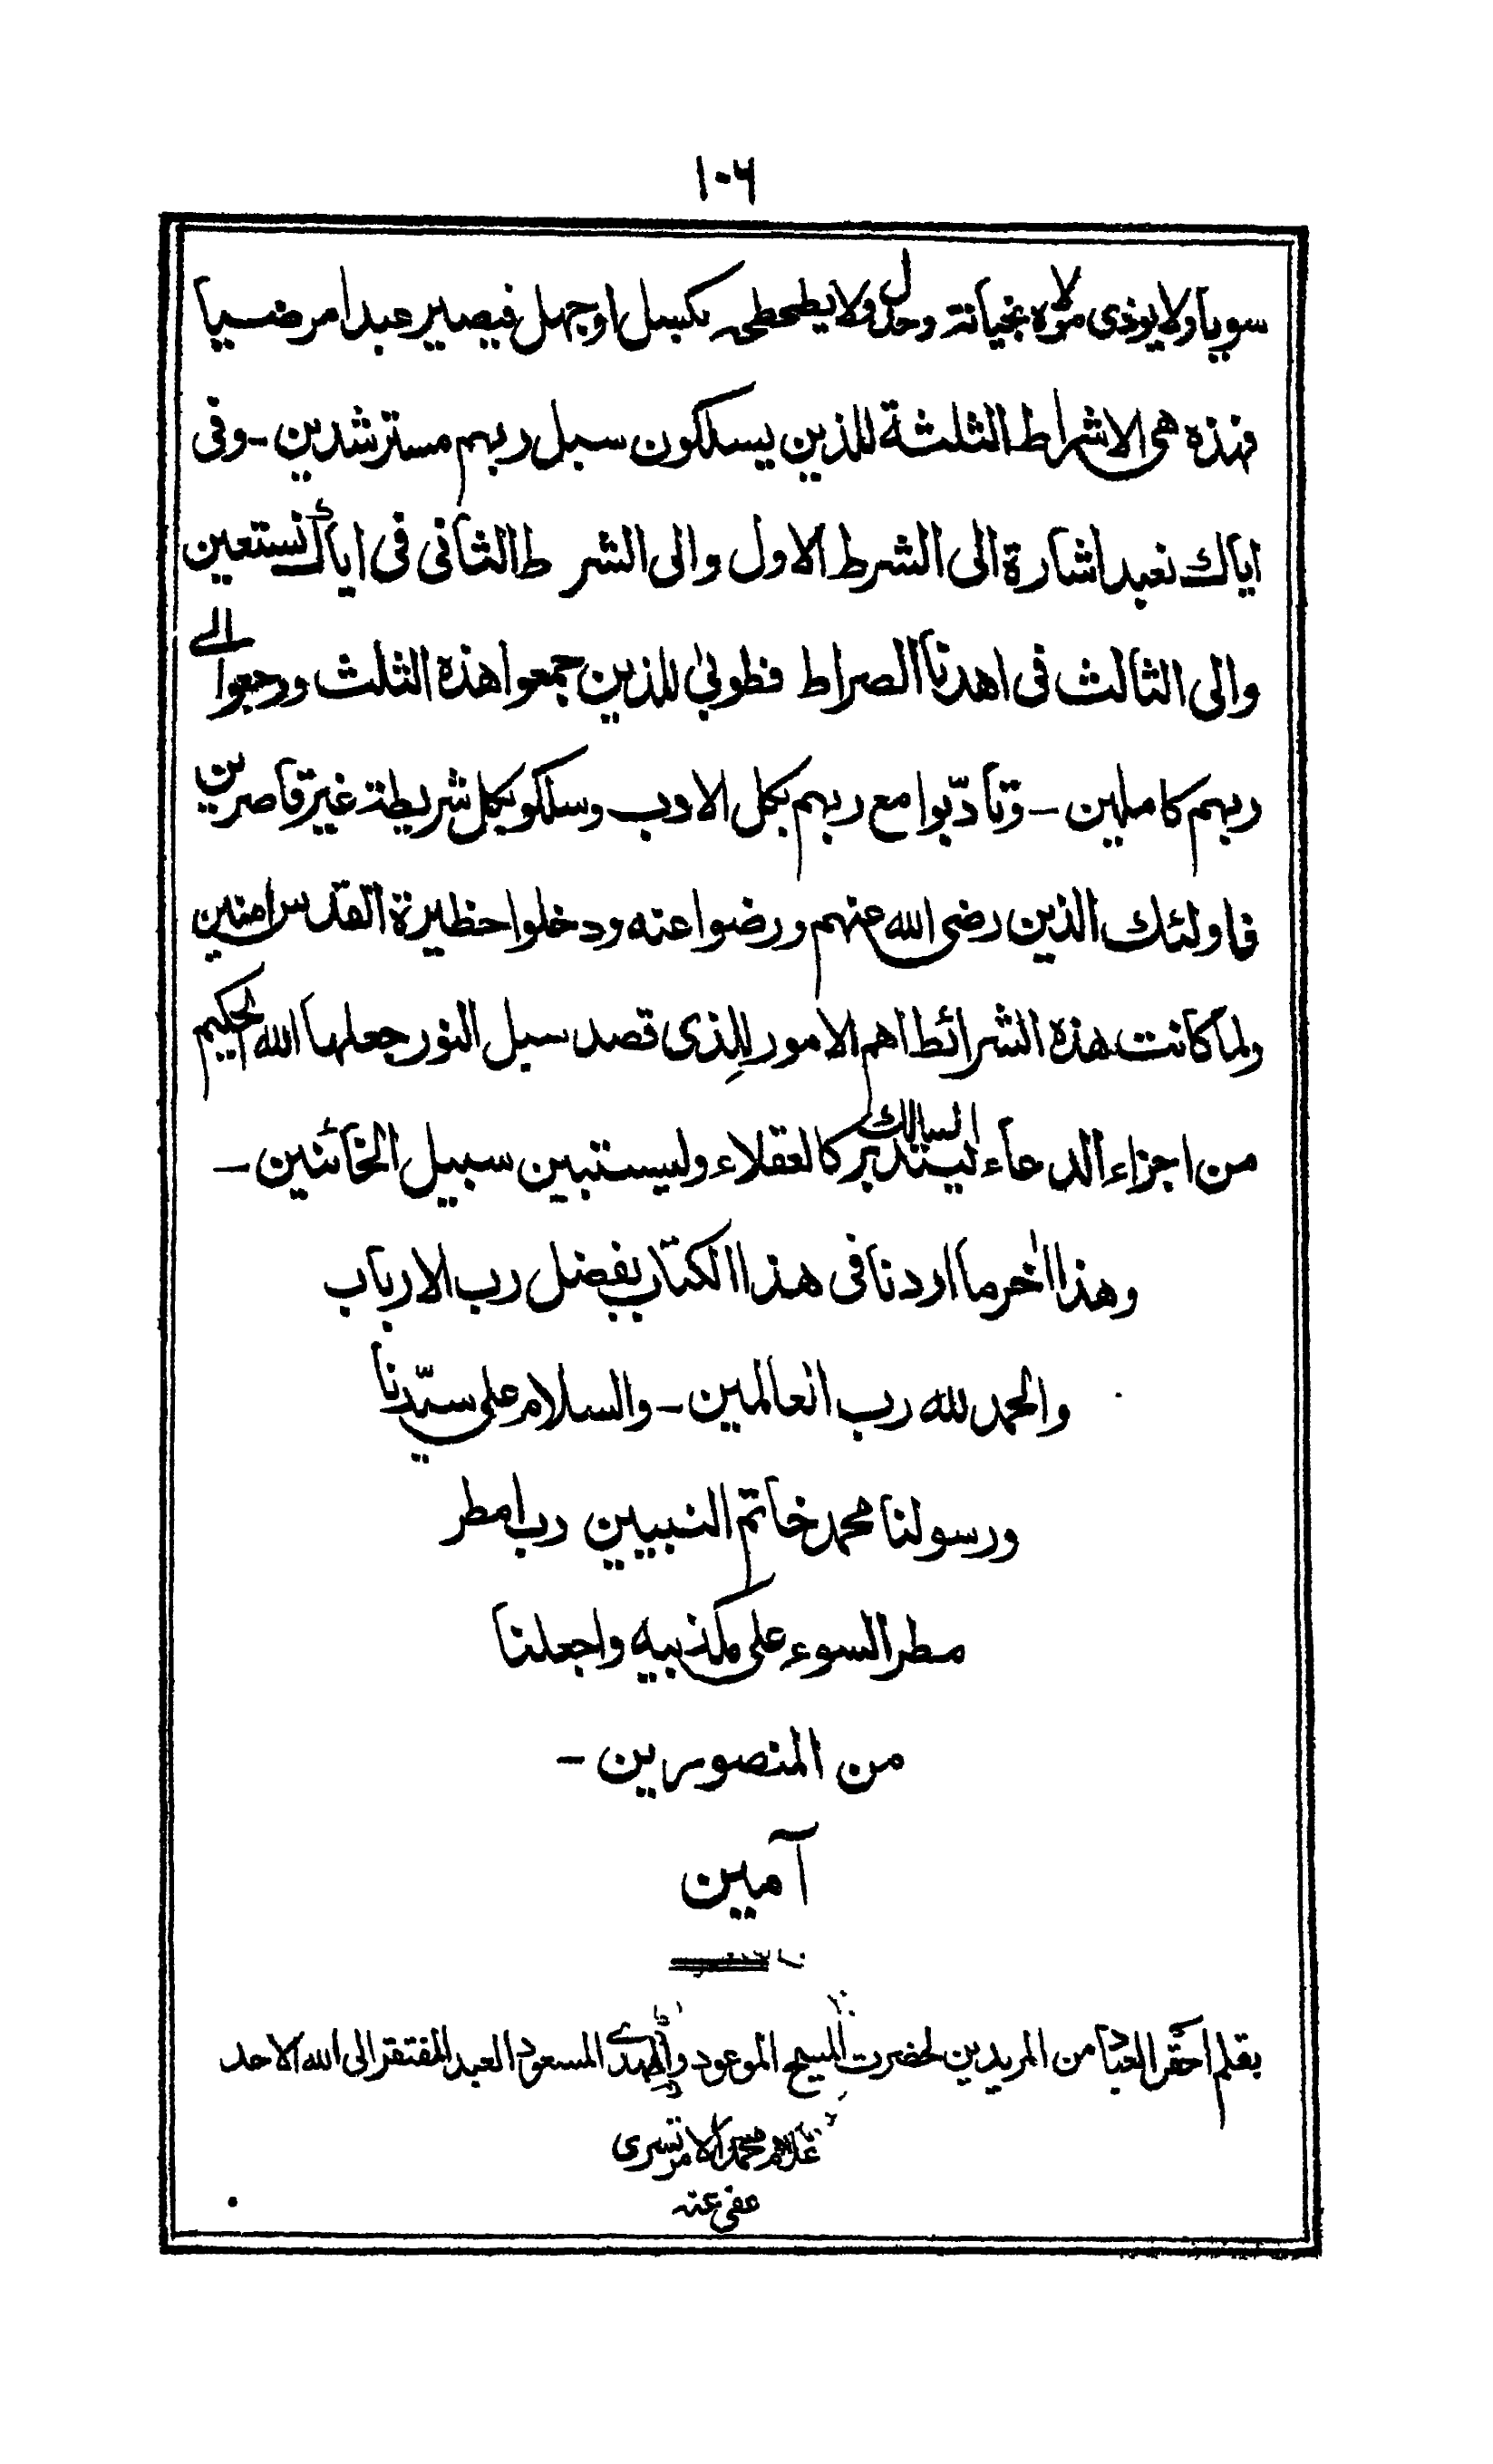 ١٠٦
سويا ولا يوذى مولاه بخيانة وحدل ولا يطحطحه بكسل او جهل فيصير عبدا مرضيا
فهذه هى الاشراط الثلثة للذين يسلكون سبل ربهم مسترشدين - وفى
اياك نعبد اشارة الى الشرط الاول والى الشرط الثانى فى اياك نستعين
والى الثالث فى اهدنا الصراط فطوبىٰ للذين جمعوا هذه الثلث ورجعوا الے
ربهم كاملين - وتأدّبوا مع ربهم بكل الادب وسلكو بكل شريطة غير قاصرين
فاولئك الذين رضى الله عنهم ورضوا عنه ودخلوا حظيرة القدس امنين
ولما كانت هذه الشرائط اهم الامور للِذى قصد سبل النور جعلها الله الحكيم
من اجزاء الدعاء ليتدبر السالك كالعقلاء وليستبين سبيل الخائنين -
وهذا اٰخر ما اردنا فى هذا الكتاب بفضل رب الارباب
والحمد لله رب العالمين - والسلام على سيّدنا
ورسولنا محمد خاتم النبيين رب امطر
مطر السوء على مكذبيه واجعلنا
من المنصورين -
آمين
بقلم احقر العباد من المريدين لحضرت المسيح الموعود والمهدے المسعود العبد المفتقر الى الله الاحد
غلام محمد الامرتسرى
عفى عنه